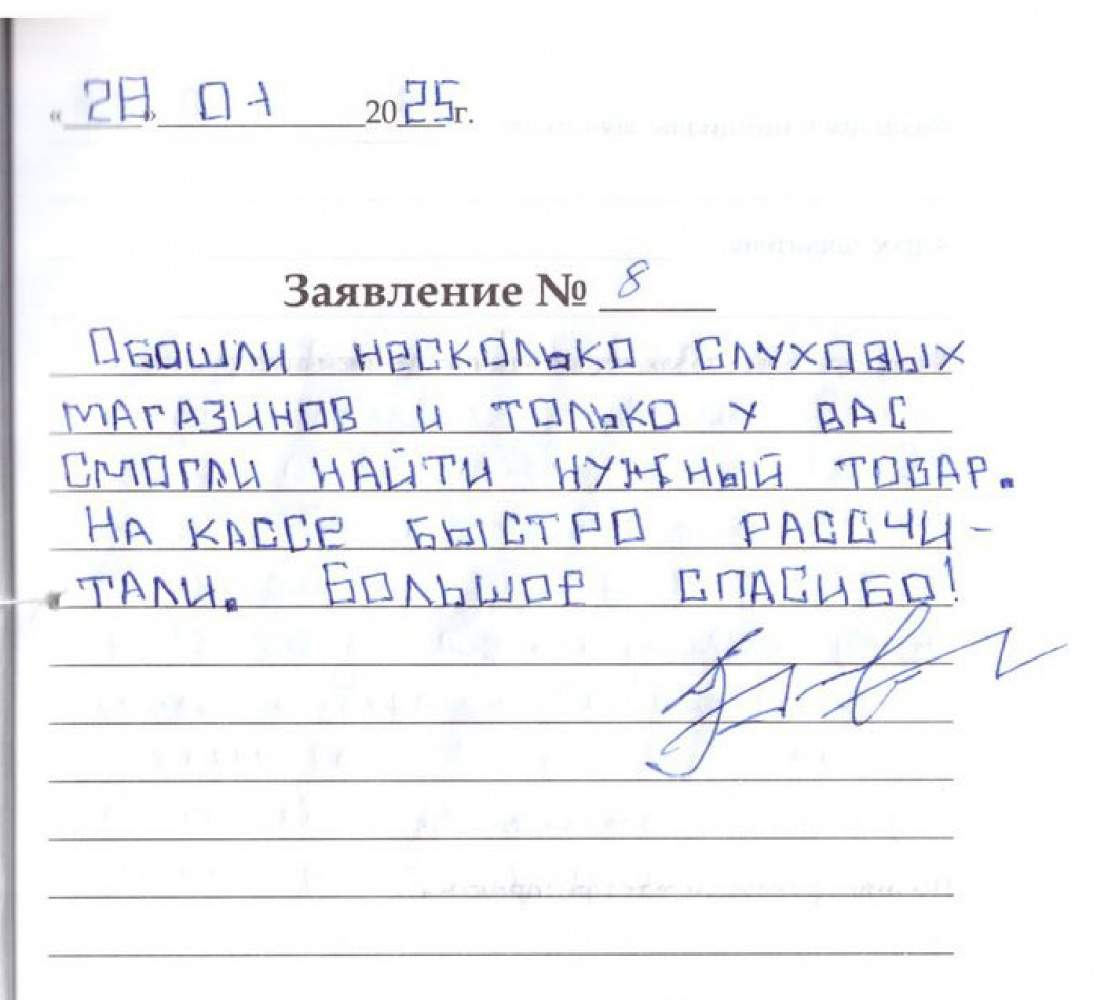 «28» 01 2025г.
Заявление № 8
Обошли несколько слуховых
магазинов и только у вас
смогли найти нужный товар.
На кассе быстро рассчи-
тали. Большое спасибо!